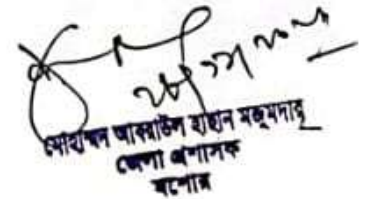 মোহাম্মদ আবরাউল হাছান মজুমদার
জেলা প্রশাসক
যশোর